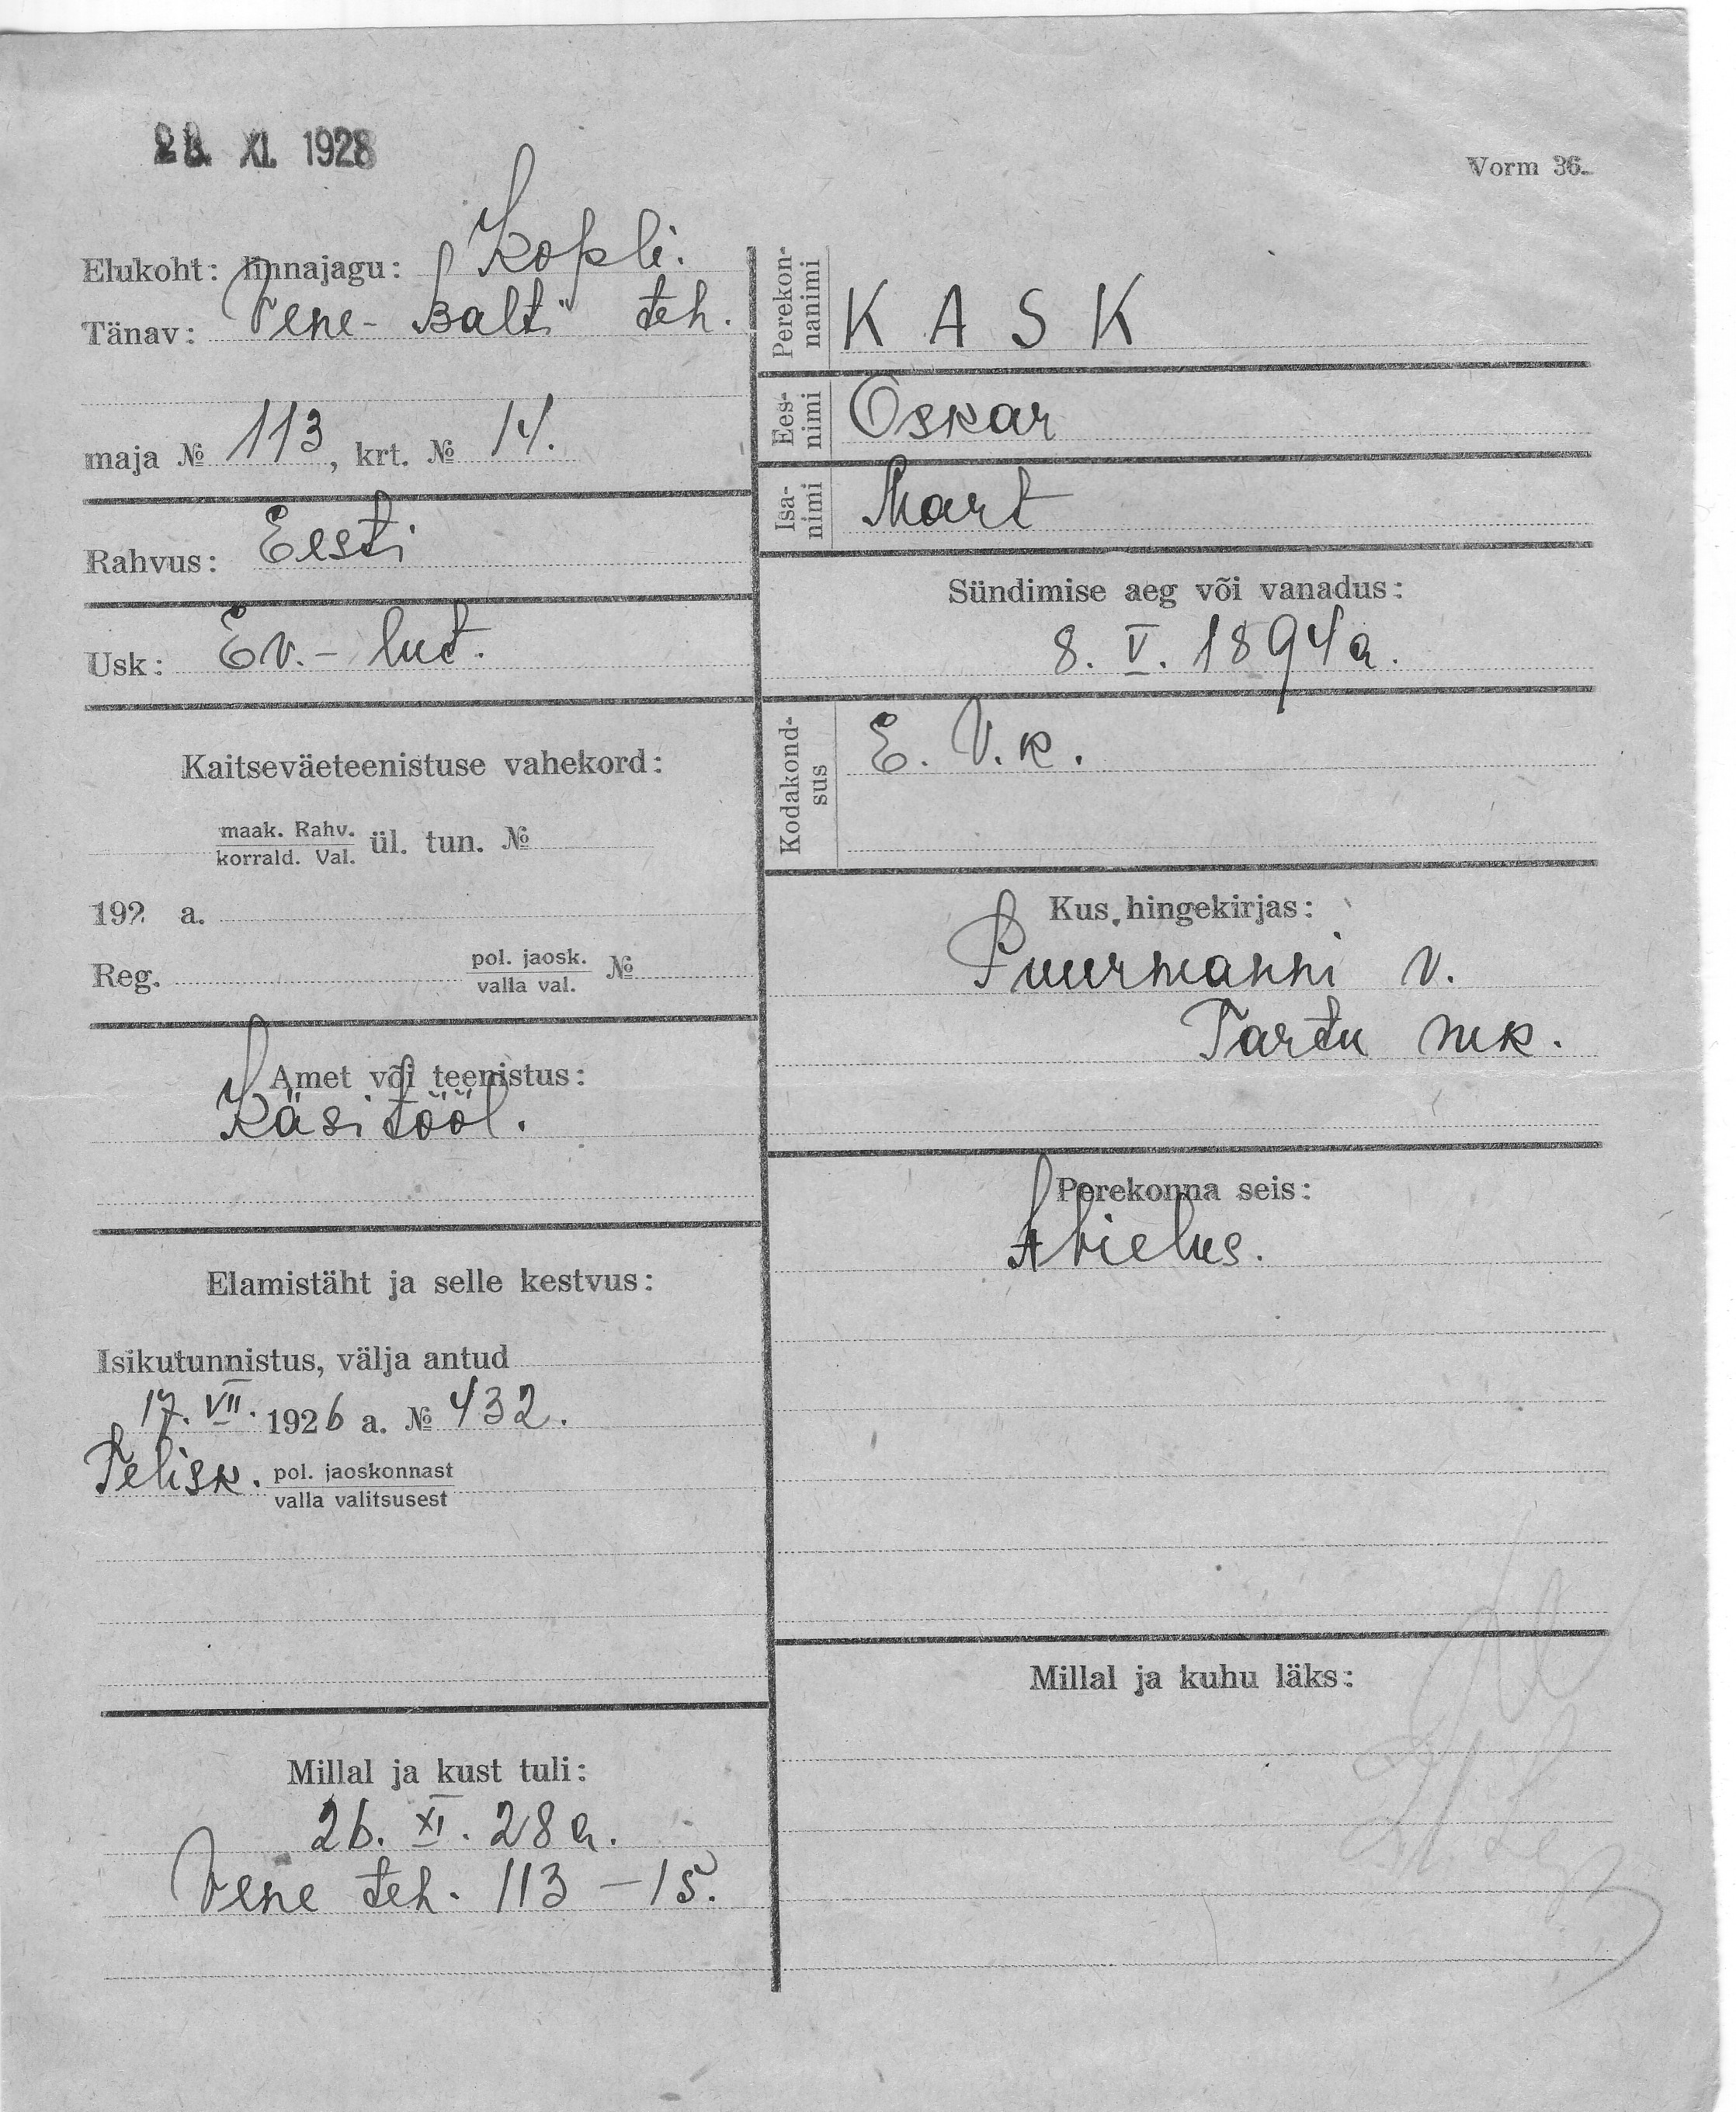 28. XI. 1928
Vorm 36.
Elukoht: linnajagu: Kopli.
Tänav: Vene-Balti teh.
maja № 113, krt. № 14.
Rahvus: Eesti
Usk: Ev.-lut.
Kaitseväeteenistuse vahekord:
maak. Rahv.
korrald. Val. ül. tun. №
192 a.
Reg. pol. jaosk. №
valla val.
Amet või teenistus:
Käsitööl.
Elamistäht ja selle kestvus:
Isikutunnistus, välja antud
17. VII. 1926 a. № 432.
Pelisk. pol. jaoskonnast
valla valitsusest
Millal ja kust tuli:
26. XI. 28 a.
Vene teh. 113 – 15.
Perekon-
nanimi
KASK
Ees-
nimi
Oskar
Isa-
nimi
Mart
Sündimise aeg või vanadus:
8. V. 1894 a.
Kodakond-
sus
E. V. k.
Kus hingekirjas:
Puurmanni v.
Tartu mk.
Perekonna seis:
Abielus.
Millal ja kuhu läks: